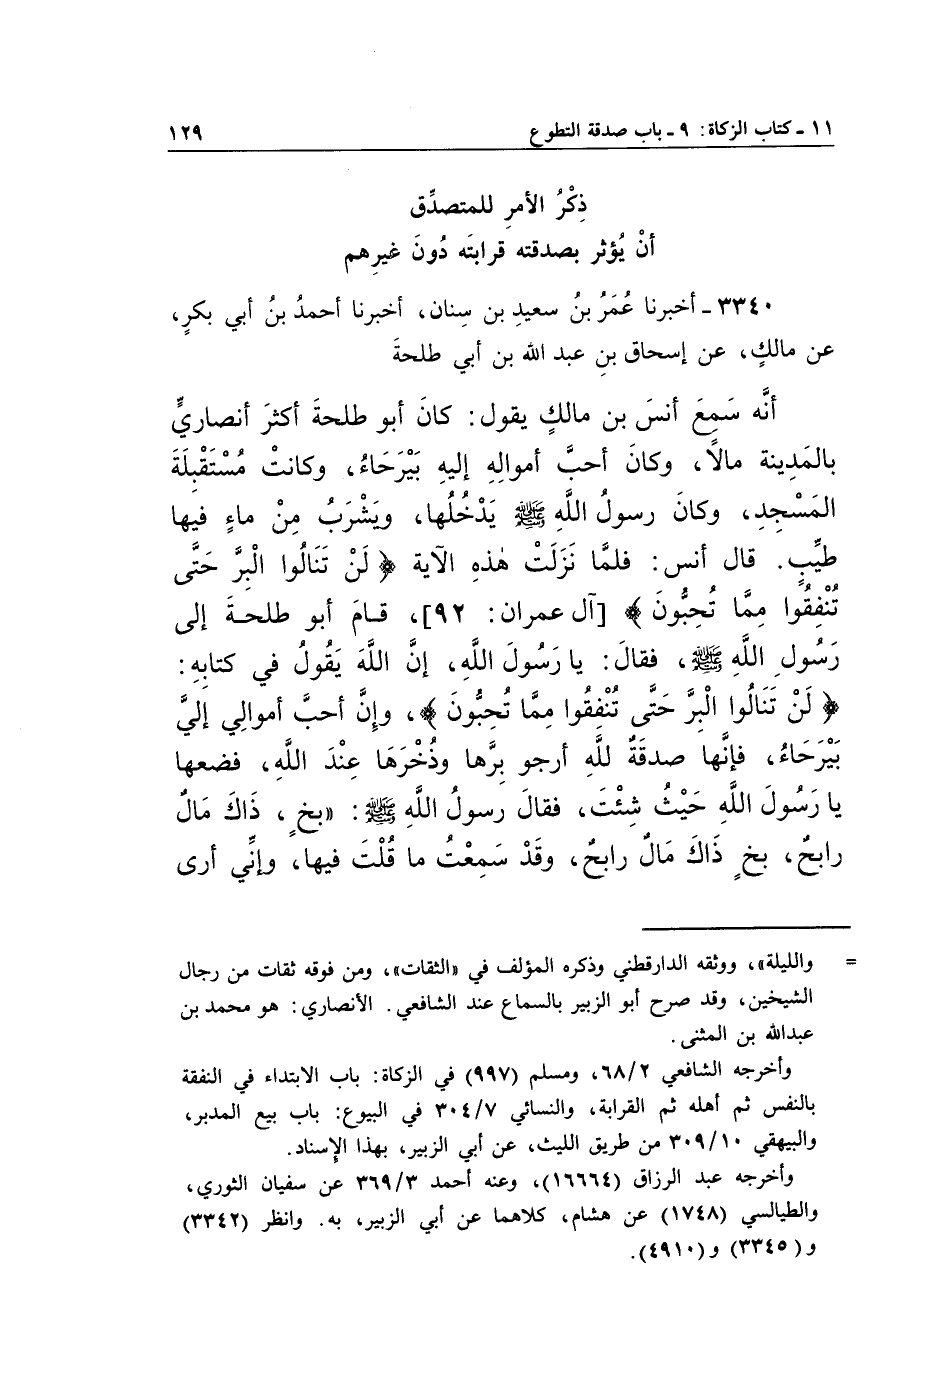 ١١ ـ كتاب الزكاة: ٩ ـ باب صدقة التطوع ١٢٩
ذِكْرُ الأمرِ للمتصدِّق
أنْ يُؤثر بصدقته قرابتَه دُونَ غيرِهم
٣٣٤٠ ـ أخبرنا عُمَرُ بنُ سعيدِ بن سِنان، أخبرنا أحمدُ بنُ أبي بكرٍ،
عن مالكٍ، عن إسحاق بنِ عبد الله بن أبي طلحةَ
أنَّه سَمِعَ أنسَ بن مالكٍ يقول: كانَ أبو طلحةَ أكثرَ أنصاريٍّ
بالمَدِينة مالًا، وكانَ أحبَّ أموالِهِ إليهِ بَيْرَحَاءُ، وكانتْ مُسْتَقْبِلَةَ
المَسْجِدِ، وكانَ رسولُ اللَّهِ ﷺ يَدْخُلُها، ويَشْرَبُ مِنْ ماءٍ فيها
طيِّبٍ. قال أنس: فلمَّا نَزَلَتْ هٰذهِ الآية ﴿لَنْ تَنَالُوا الْبِرَّ حَتَّى
تُنْفِقُوا مِمَّا تُحِبُّونَ﴾ [آل عمران: ٩٢]، قـامَ أبو طلحـةَ إلى
رَسُولِ اللَّهِ ﷺ، فقالَ: يا رَسُولَ اللَّهِ، إنَّ اللَّهَ يَقُولُ في كتابِهِ:
﴿لَنْ تَنَالُوا الْبِرَّ حَتَّى تُنْفِقُوا مِمَّا تُحِبُّونَ﴾، وإنَّ أحبَّ أموالي إليَّ
بَيْرَحَاءُ، فإنَّها صدقَةٌ للَّهِ أرجو بِرَّها وذُخْرَهَا عِنْدَ اللَّهِ، فضعها
يا رَسُولَ اللَّهِ حَيْثُ شِئْتَ، فقالَ رسولُ اللَّهِ ﷺ: «بخٍ، ذَاكَ مَالٌ
رابحٌ، بخٍ ذَاكَ مَالٌ رابحٌ، وقَدْ سَمِعْتُ ما قُلْتَ فيها، وإنِّي أرى
= والليلة»، ووثقه الدارقطني وذكره المؤلف في «الثقات»، ومن فوقه ثقات من رجال
الشيخين، وقد صرح أبو الزبير بالسماع عند الشافعي. الأنصاري: هو محمد بن
عبدالله بن المثنى.
وأخرجه الشافعي ٦٨/٢، ومسلم (٩٩٧) في الزكاة: باب الابتداء في النفقة
بالنفس ثم أهله ثم القرابة، والنسائي ٣٠٤/٧ في البيوع: باب بيع المدبر،
والبيهقي ٣٠٩/١٠ من طريق الليث، عن أبي الزبير، بهذا الإسناد.
وأخرجه عبد الرزاق (١٦٦٦٤)، وعنه أحمد ٣٦٩/٣ عن سفيان الثوري،
والطيالسي (١٧٤٨) عن هشام، كلاهما عن أبي الزبير، به. وانظر (٣٣٤٢)
و (٣٣٤٥) و(٤٩١٠).